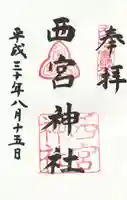 奉拝
西宮神社
平成三十年八月十五日